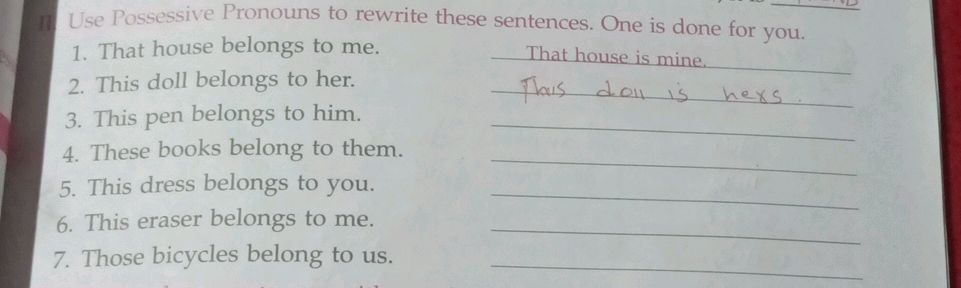 II. Use Possessive Pronouns to rewrite these sentences. One is done for you.
1. That house belongs to me. That house is mine.
2. This doll belongs to her. Thais doll is hers.
3. This pen belongs to him.
4. These books belong to them.
5. This dress belongs to you.
6. This eraser belongs to me.
7. Those bicycles belong to us.